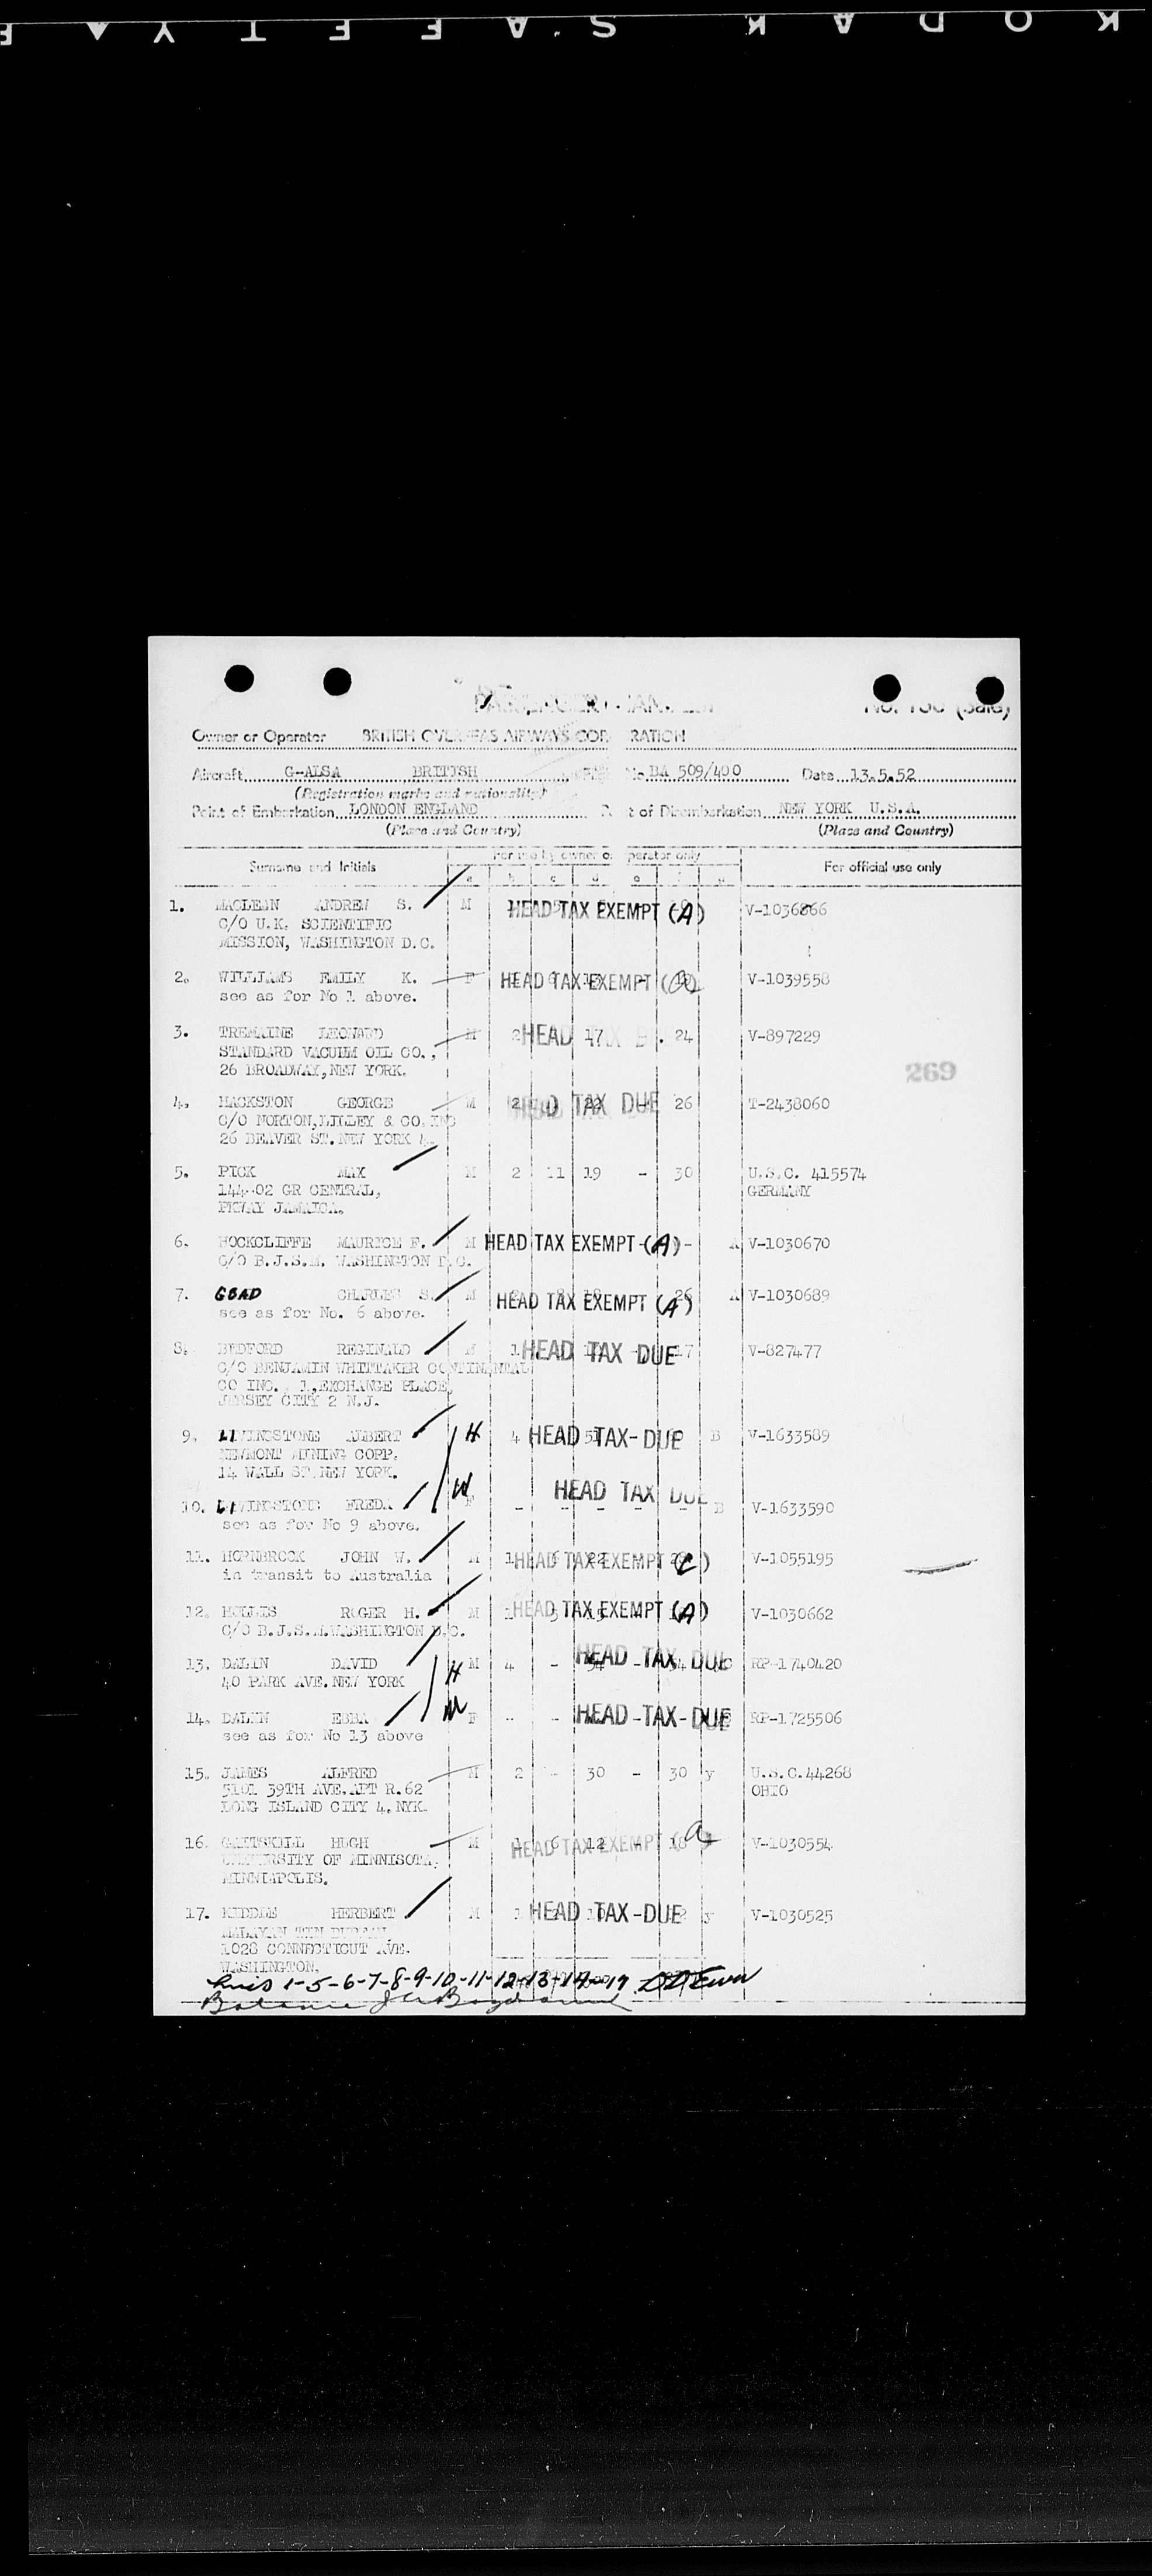 KODAK SAFETY
PASSENGER MANIFEST
No. 106 (Sale)
Owner or Operator BRITISH OVERSEAS AIRWAYS CORPORATION
Aircraft G-ALSA BRITISH No BA 509/400 Date 13.5.52
(Registration marks and nationality)
Point of Embarkation LONDON ENGLAND Point of Disembarkation NEW YORK U.S.A.
(Place and Country) (Place and Country)
For use by owner or operator only
Surname and Initials For official use only
a b c d e f g
1. MACLEAN ANDREW S. M HEAD TAX EXEMPT (A) V-1036866
C/O U.K. SCIENTIFIC
MISSION, WASHINGTON D.C.
2. WILLIAMS EMILY K. F HEAD TAX EXEMPT (A) V-1039558
see as for No 1 above.
3. TREMAINE LEONARD M 2 HEAD TAX 17 24 V-897229
STANDARD VACUUM OIL CO.,
26 BROADWAY, NEW YORK.
269
4. HACKSTON GEORGE M 2 HEAD TAX DUE 22 26 T-2438060
C/O NORTON, LILLEY & CO. INC
26 BEAVER ST. NEW YORK 4.
5. PICK MAX M 2 11 19 - 30 U.S.C. 415574
144-02 GR CENTRAL, GERMANY
PKWAY JAMAICA.
6. HOCKCLIFFE MAURICE F. M HEAD TAX EXEMPT (A) - A V-1030670
C/O B.J.S.M. WASHINGTON D.C.
7. GOAD CHARLES S. M HEAD TAX EXEMPT (A) 26 A V-1030689
see as for No. 6 above.
8. BEDFORD REGINALD M 1 HEAD TAX DUE 17 V-827477
C/O BENJAMIN WHITTAKER CONTINENTAL
CO INC. 1, EXCHANGE PLACE,
JERSEY CITY 2 N.J.
9. LIVINGSTONE ALBERT H 4 HEAD TAX-DUE 51 B V-1633589
NEWMONT MINING COPP.
14 WALL ST. NEW YORK.
W HEAD TAX DUE
10. LIVINGSTONE FREDA F - - - - - B V-1633590
see as for No 9 above.
11. HORNBROOK JOHN W. M 1 6 22 HEAD TAX EXEMPT (C) V-1055195
in transit to Australia
12. HOLLIS ROGER H. M 1 3 15 HEAD TAX EXEMPT (A) V-1030662
C/O B.J.S.M. WASHINGTON D.C.
13. DALIN DAVID H M 4 - 54 - 54 HEAD TAX DUE RP-1740420
40 PARK AVE. NEW YORK
14. DALIN EBBA W F - - HEAD-TAX-DUE RP-1725506
see as for No 13 above
15. JAMES ALFRED M 2 - 30 - 30 y U.S.C. 44268
3101 39TH AVE. APT R.62 OHIO
LONG ISLAND CITY 4. NYK.
16. GAITSKILL HUGH M 1 6 12 - 18 HEAD TAX EXEMPT (a) V-1030554
UNIVERSITY OF MINNISOTA,
MINNIAPOLIS.
17. KIDDLE HERBERT M 1 HEAD TAX-DUE y V-1030525
MALAYAN TIN BUREAU,
1028 CONNECTICUT AVE.
WASHINGTON.
1-5-6-7-8-9-10-11-12-13-14-17
Balance